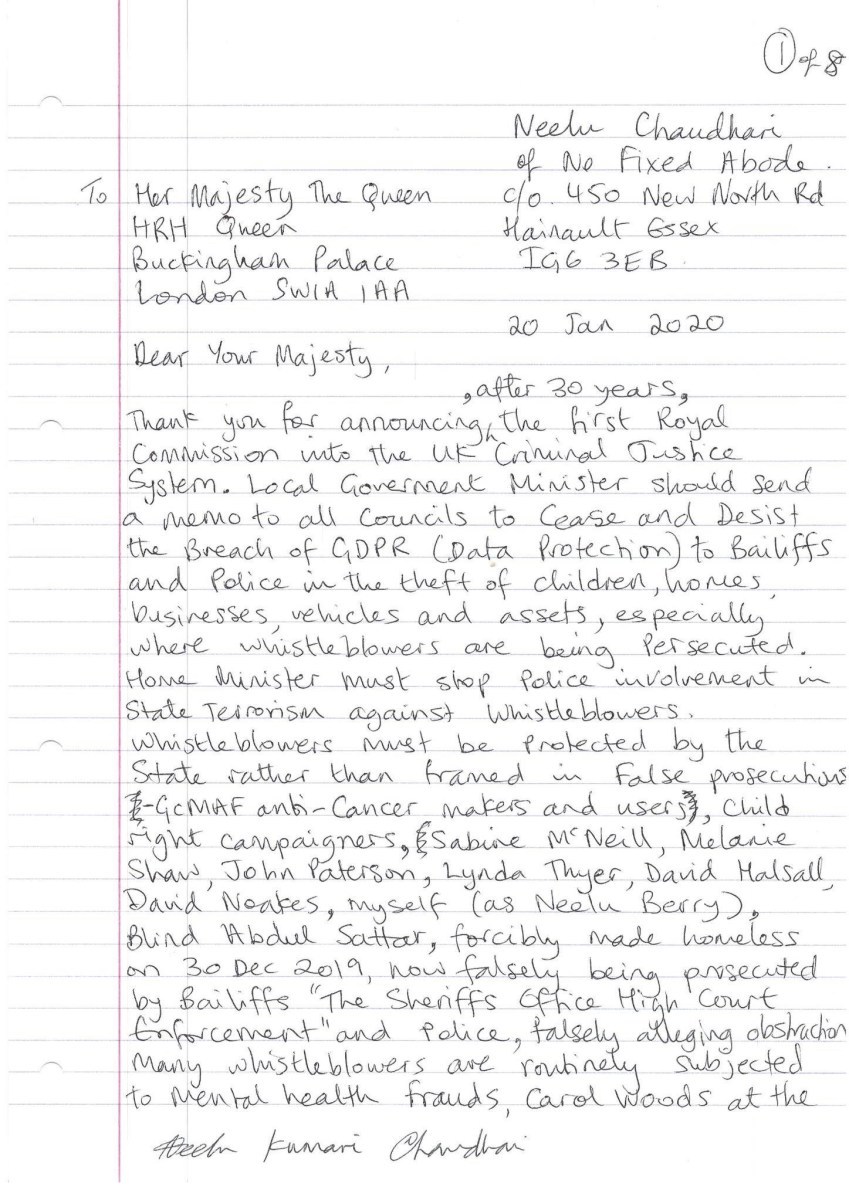 ① of 8
Neelu Chaudhari
of No Fixed Abode.
To Her Majesty The Queen c/o. 450 New North Rd
HRH Queen Hainault Essex
Buckingham Palace IG6 3EB.
London SW1A 1AA
20 Jan 2020
Dear Your Majesty,
, after 30 years,
Thank you for announcing the first Royal
Commission into the UK Criminal Justice
System. Local Goverment Minister should send
a memo to all Councils to Cease and Desist
the Breach of GDPR (Data Protection) to Bailiffs
and Police in the theft of children, homes,
businesses, vehicles and assets, especially
where whistleblowers are being Persecuted.
Home Minister must stop Police involvement in
State Terrorism against Whistleblowers.
Whistleblowers must be protected by the
State rather than framed in False prosecutions
-GcMAF anti-Cancer makers and users, Child
right campaigners, Sabine McNeill, Melanie
Shaw, John Paterson, Lynda Thyer, David Halsall,
David Noakes, myself (as Neelu Berry),
Blind Abdul Sattar, forcibly made homeless
on 30 Dec 2019, now falsely being prosecuted
by Bailiffs "The Sheriffs Office High Court
Enforcement" and Police, falsely alleging obstruction
Many whistleblowers are routinely subjected
to Mental health frauds, Carol Woods at the
Neelu Kumari Chaudhari